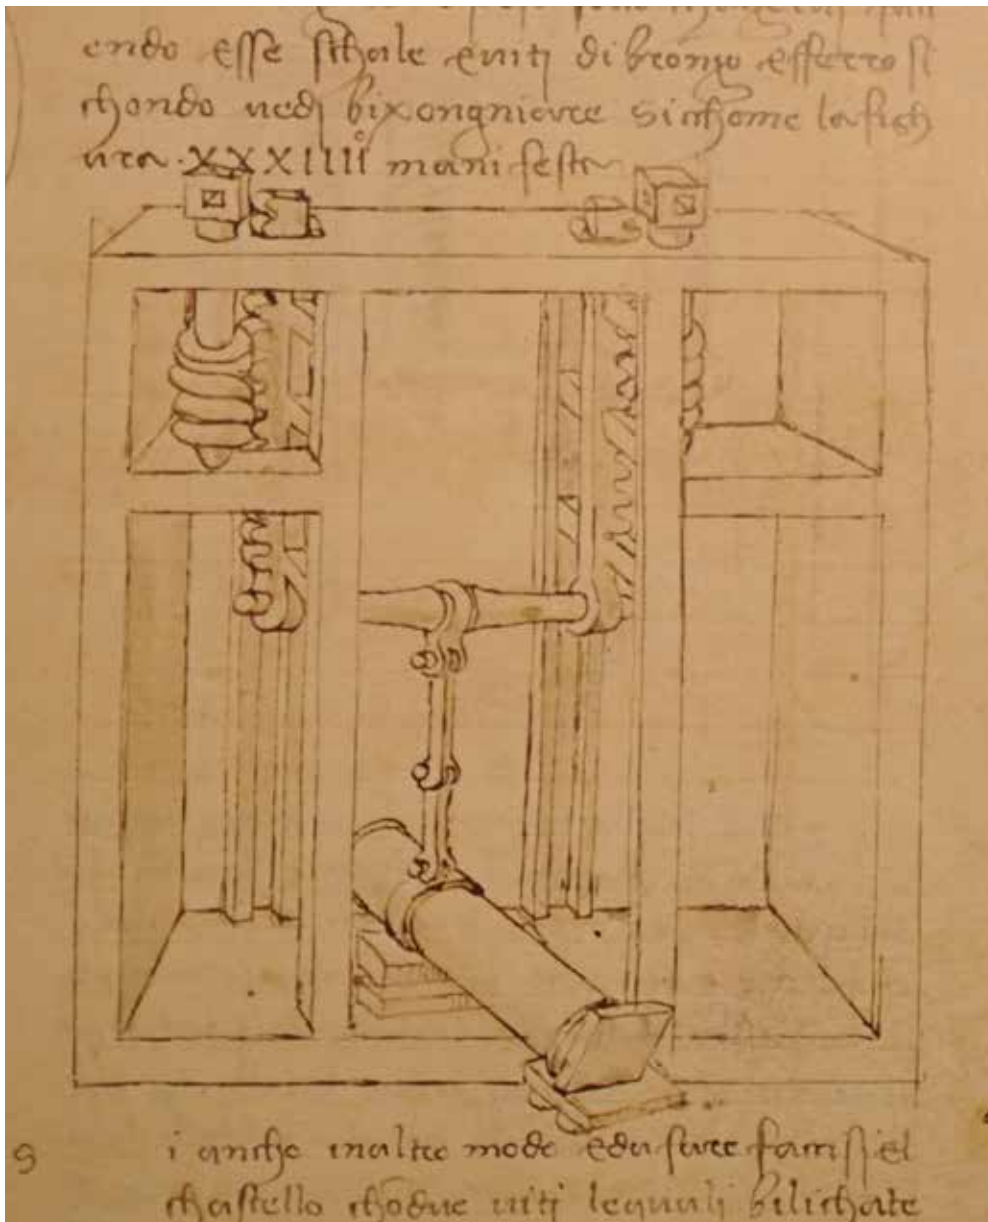 endo esse schale e viti di bronzo e fferro si
chondo vedj bixongniare sicchome la figh
ura .XXXIIII° manifesta
S i anche in altro modo e da fare farassj el
chastello chodue viti lequali bilichate